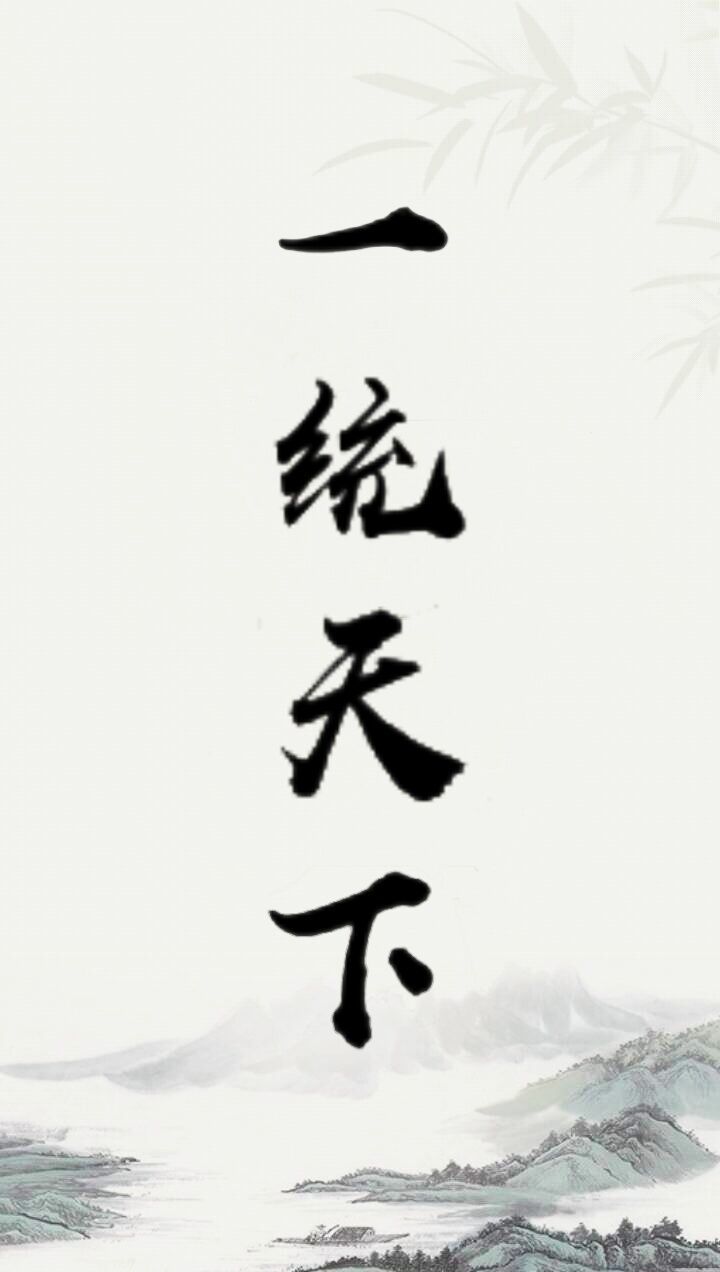 一统天下